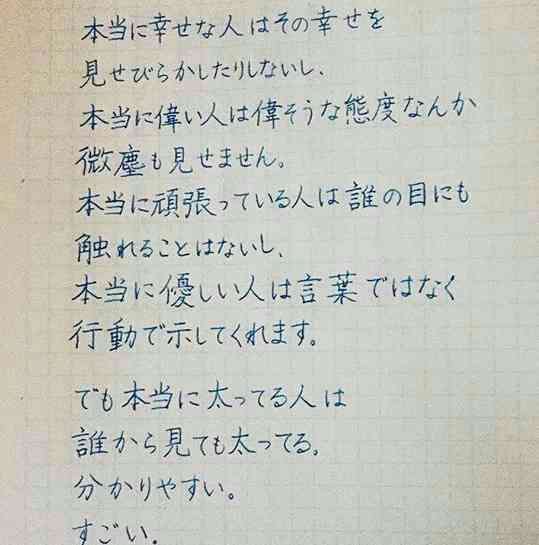 本当に幸せな人はその幸せを
見せびらかしたりしないし、
本当に偉い人は偉そうな態度なんか
微塵も見せません。
本当に頑張っている人は誰の目にも
触れることはないし、
本当に優しい人は言葉ではなく
行動で示してくれます。
でも本当に太ってる人は
誰から見ても太ってる。
分かりやすい。
すごい。